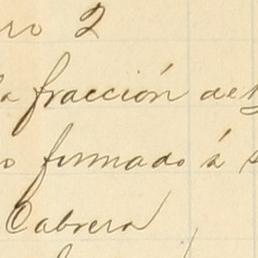 ro 2
la fracción de
o formado á s
Cabrera